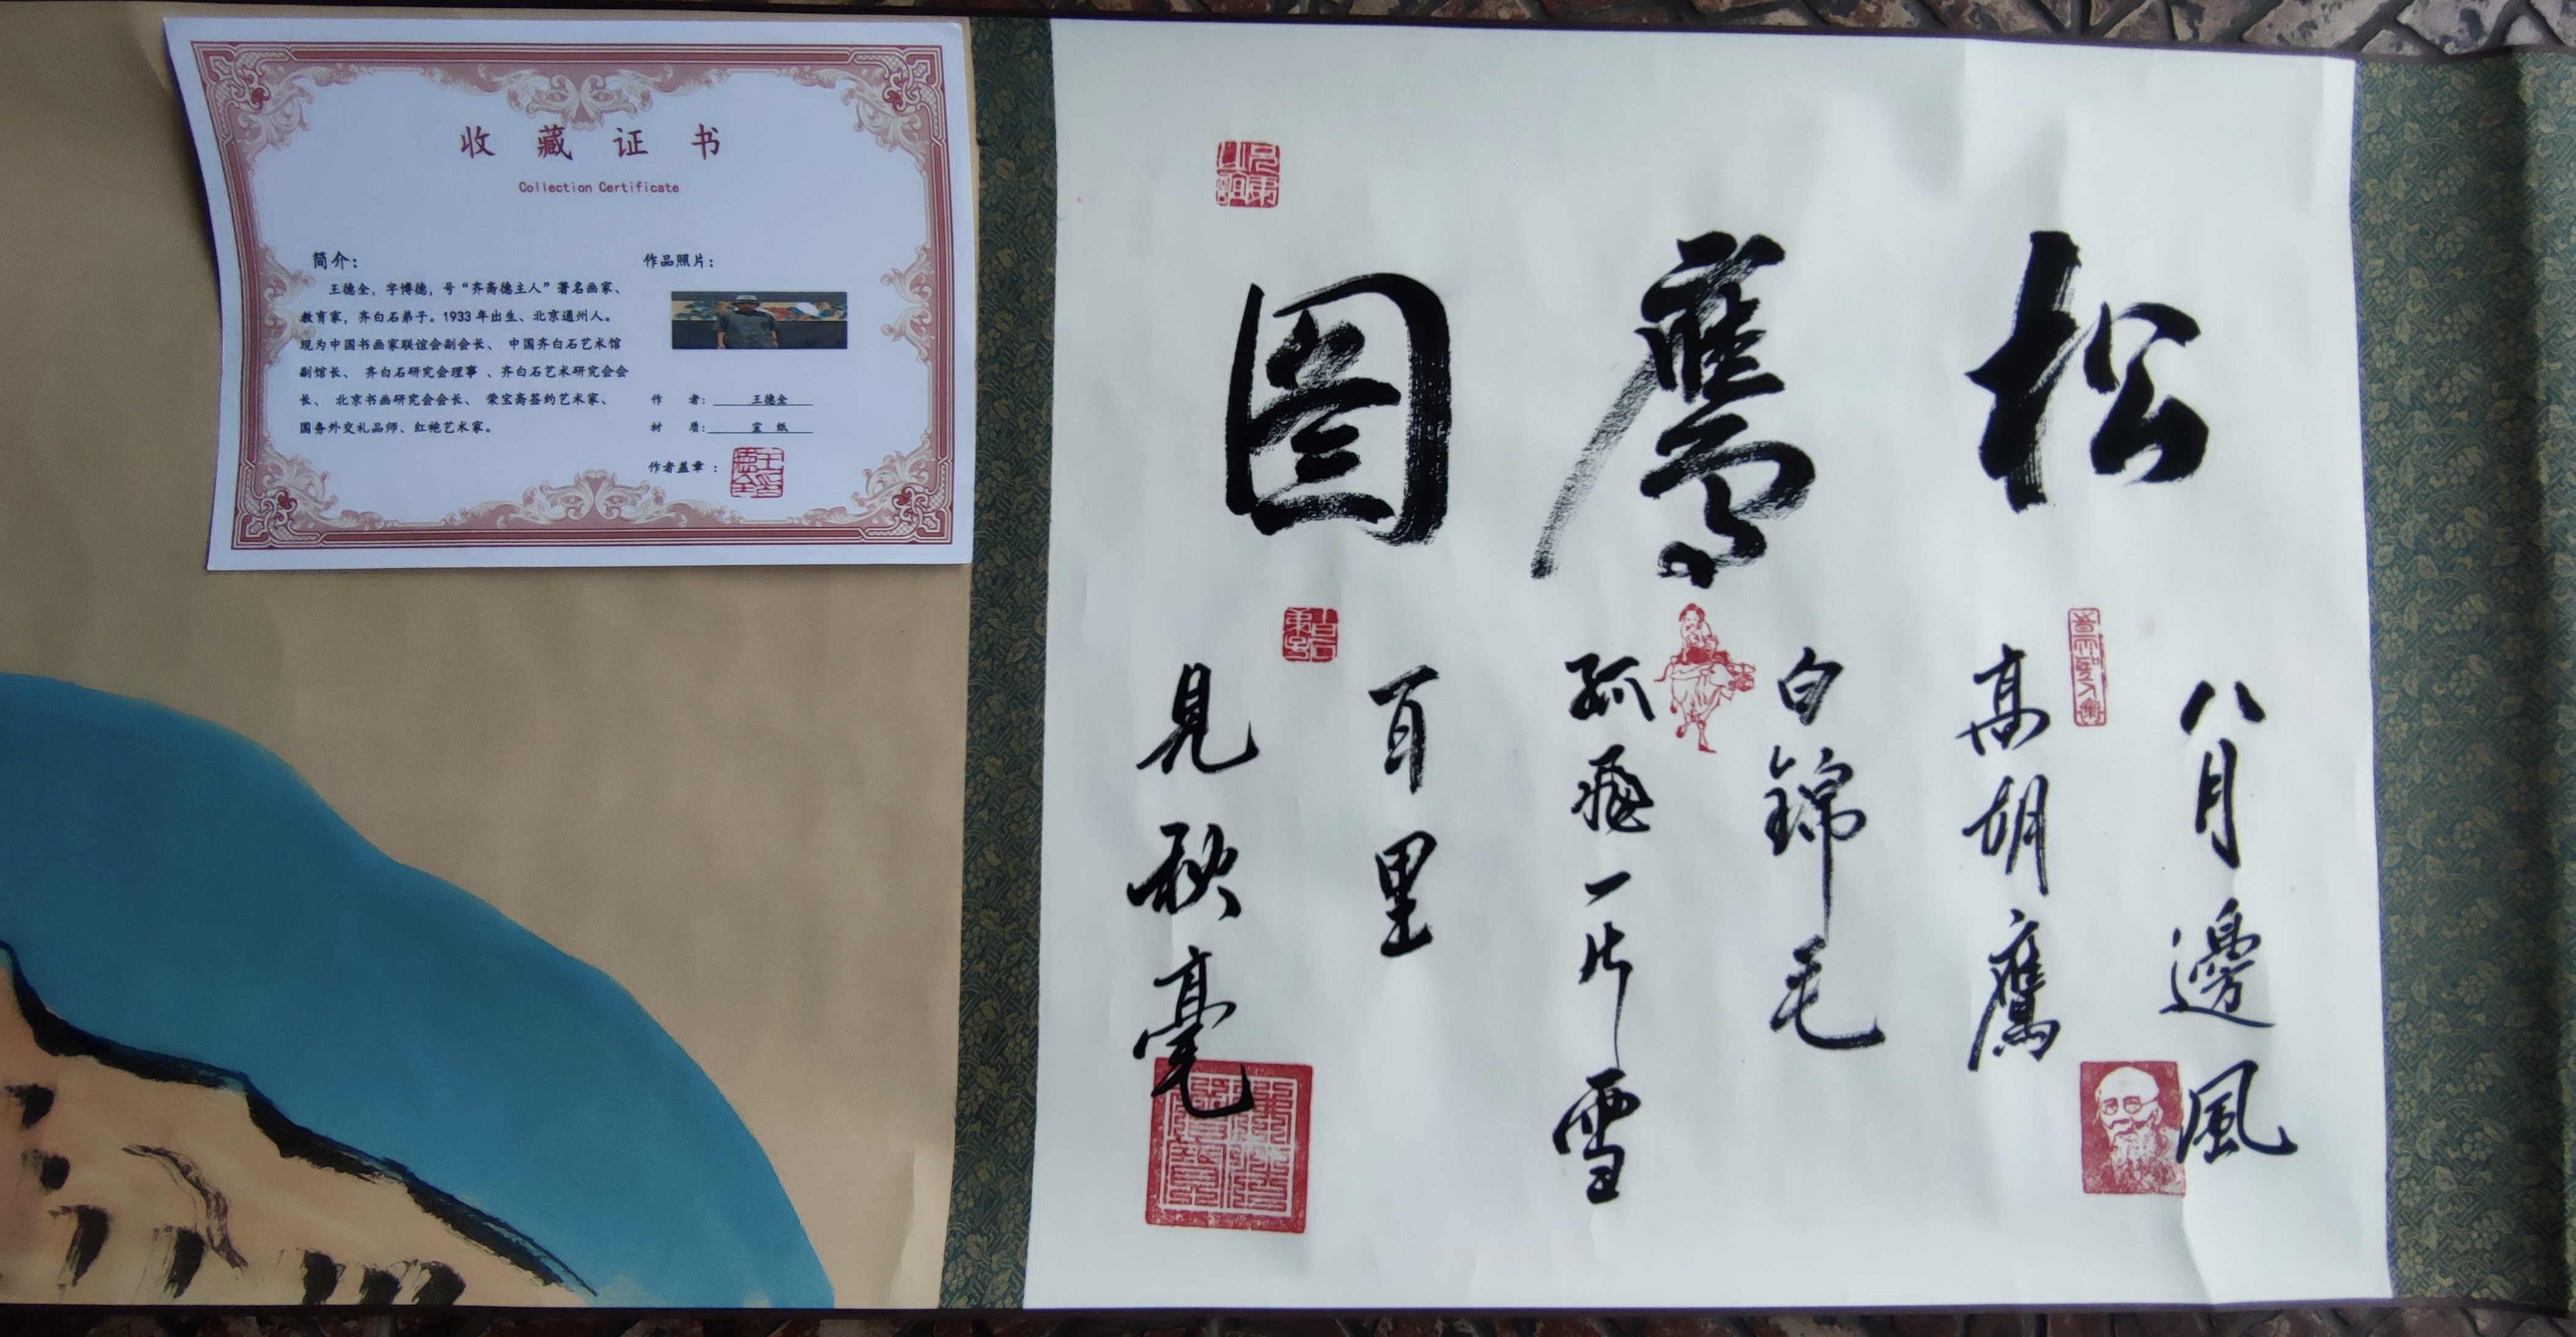 收藏证书
Collection Certificate
简介：
王德全，字博德，号“齐斋德主人”著名画家、
教育家，齐白石弟子。1933年出生、北京通州人。
现为中国书画家联谊会副会长、 中国齐白石艺术馆
副馆长、 齐白石研究会理事 、齐白石艺术研究会会
长、 北京书画研究会会长、 荣宝斋签约艺术家、
国务外交礼品师、红袍艺术家。
作品照片：
作 者：王德全
材 质：宣 纸
作者盖章 ：
松鷹圖
八月邊風
高胡鷹
白錦毛
孤飛一片雪
百里
見秋毫